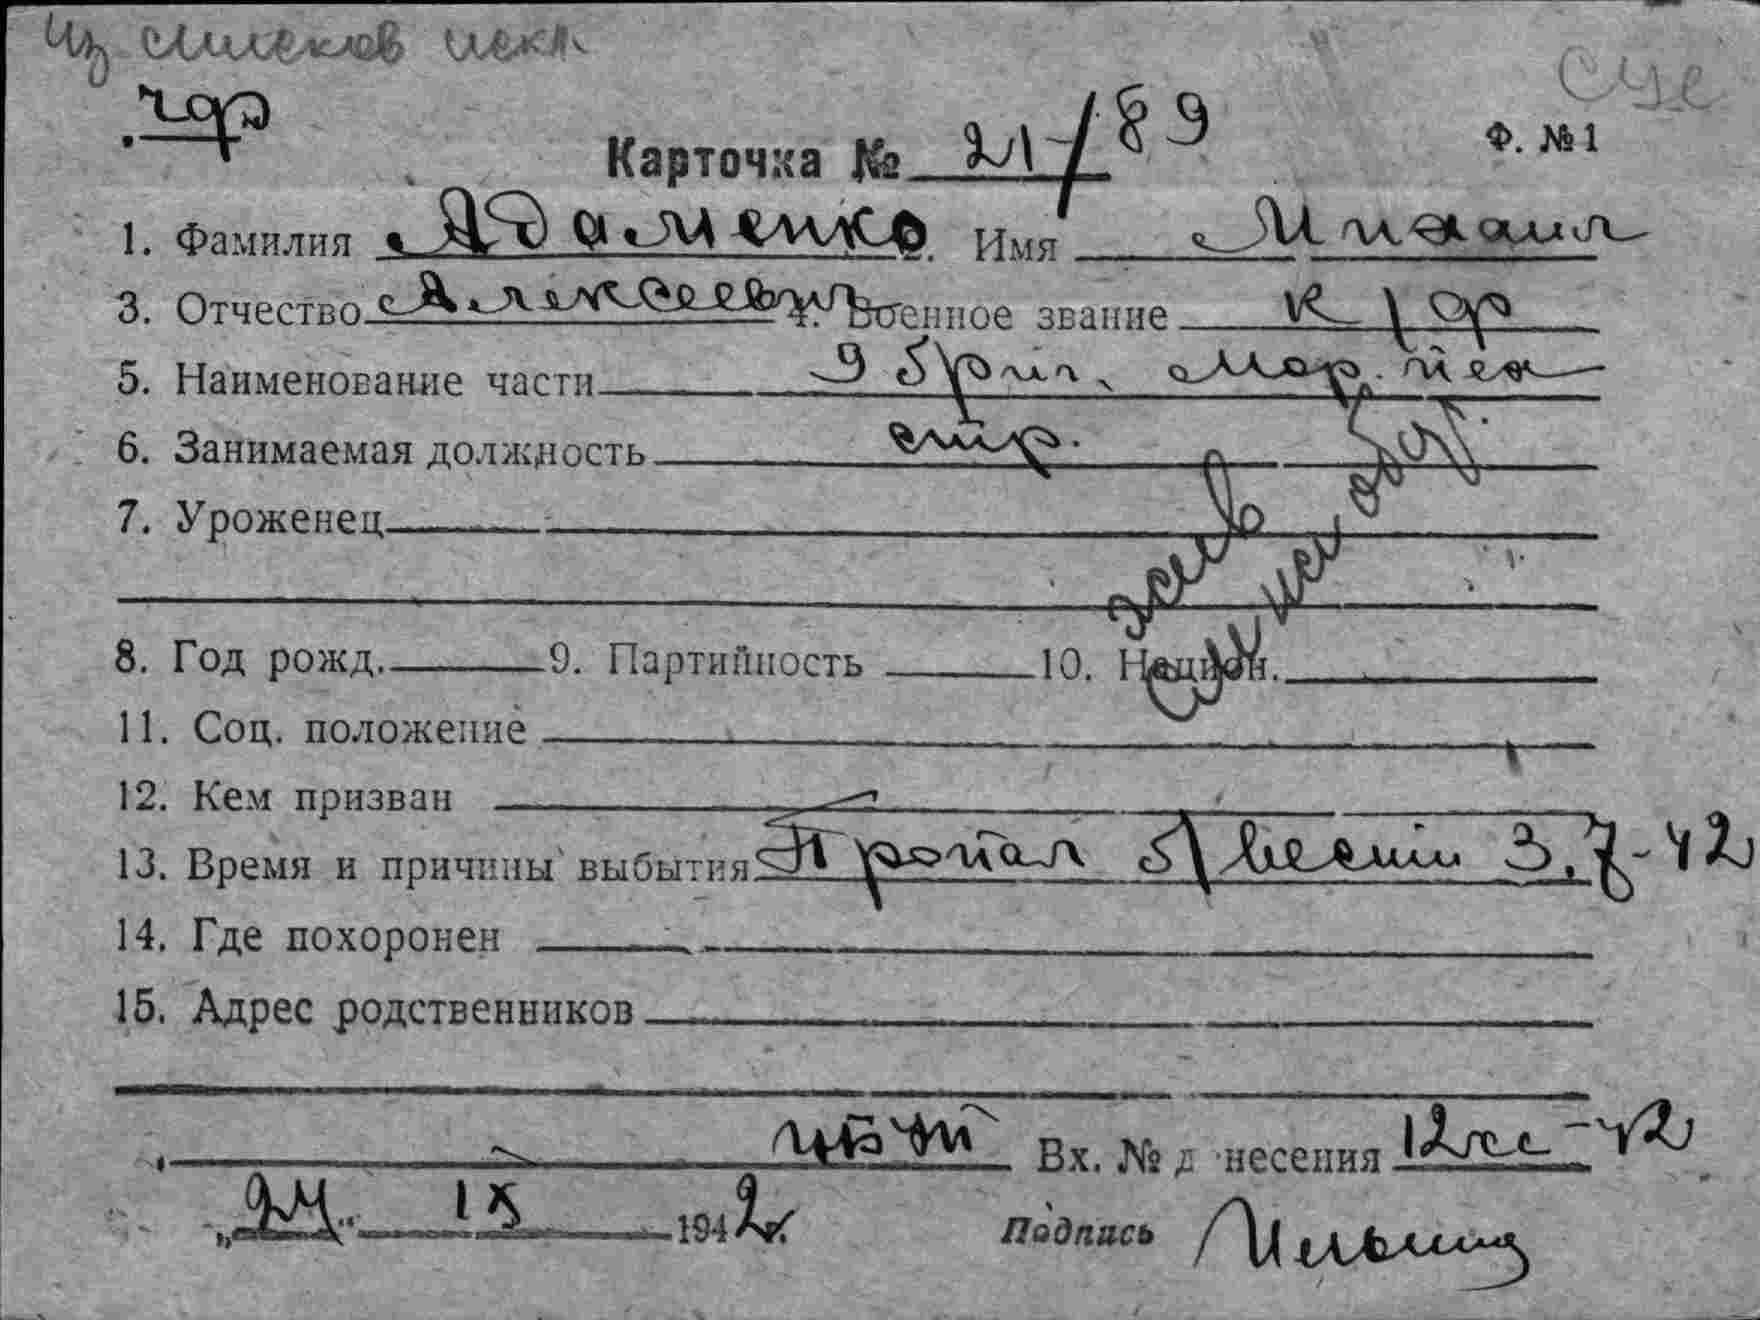 Из списков искл.
Карточка № 21/89 Ф. №1
1. Фамилия Адаменко. Имя Михаил
3. Отчество Алексеевич 4. Военное звание к/ф
5. Наименование части 9 бриг. мор. пех
6. Занимаемая должность стр.
7. Уроженец
8. Год рожд. 9. Партийность 10. Национ.
11. Соц. положение
12. Кем призван
13. Время и причины выбытия Пропал б/вести 3.7-42
14. Где похоронен
15. Адрес родственников
Вх. № д несения 12
„24" IX 1942
Подпись